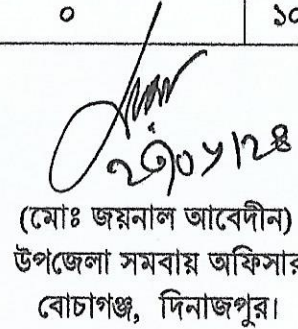 ০ ১০
(মোঃ জয়নাল আবেদীন)
উপজেলা সমবায় অফিসার
বোচাগঞ্জ, দিনাজপুর।